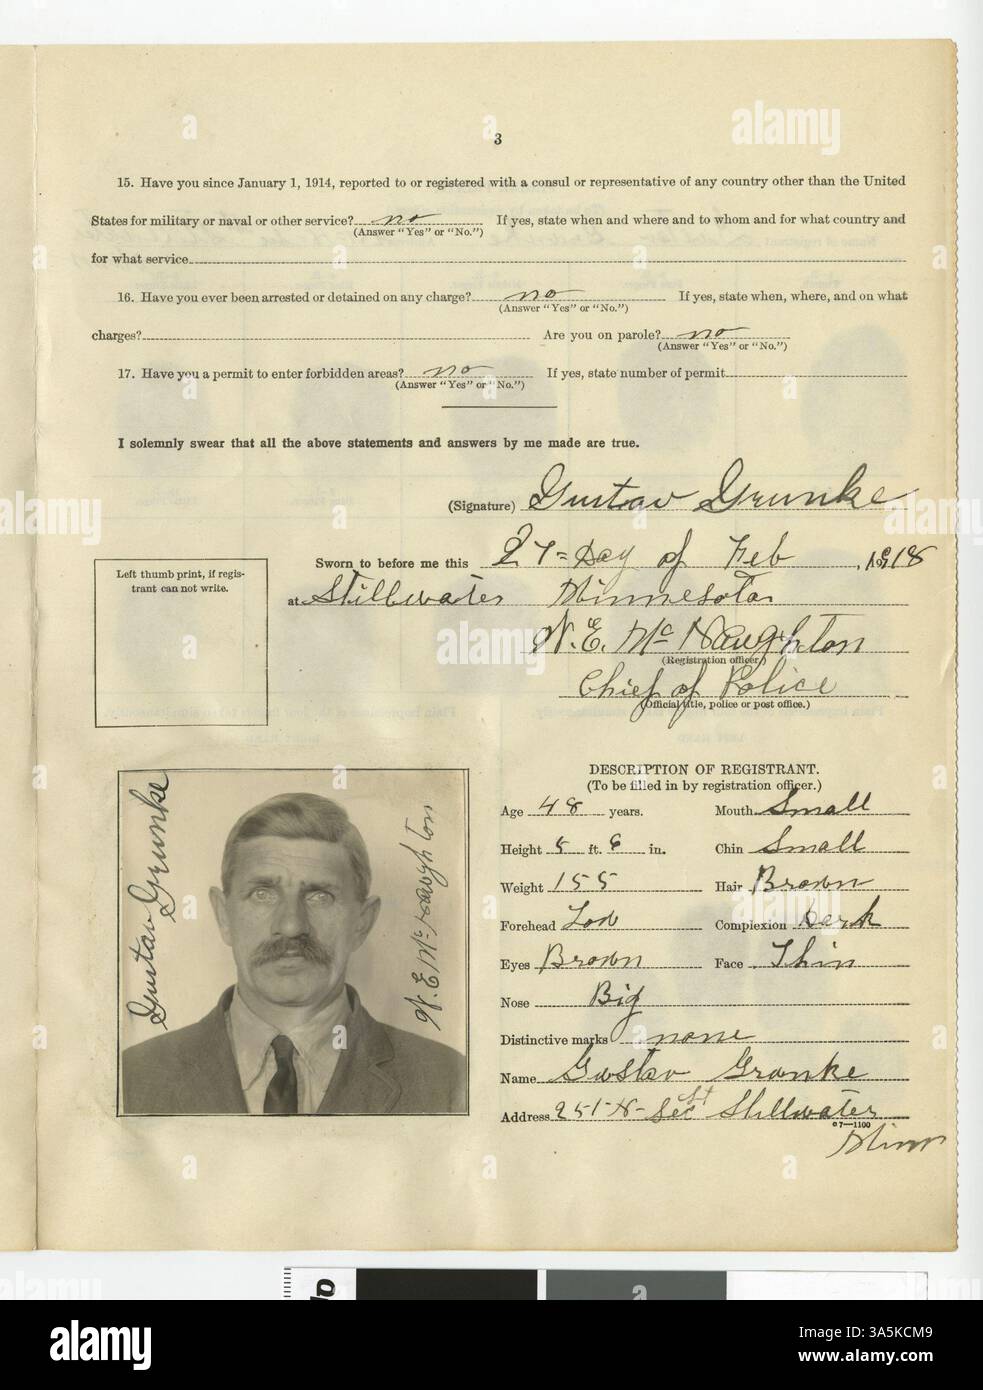 3
15. Have you since January 1, 1914, reported to or registered with a consul or representative of any country other than the United
States for military or naval or other service? no If yes, state when and where and to whom and for what country and
(Answer "Yes" or "No.")
for what service
16. Have you ever been arrested or detained on any charge? no If yes, state when, where, and on what
(Answer "Yes" or "No.")
charges? Are you on parole? no
(Answer "Yes" or "No.")
17. Have you a permit to enter forbidden areas? no If yes, state number of permit
(Answer "Yes" or "No.")
I solemnly swear that all the above statements and answers by me made are true.
(Signature) Gustav Grunke
Sworn to before me this 27= Day of Feb, 1918
at Stillwater Minnesota
Left thumb print, if regis-
trant can not write.
N. E. McNaughton
(Registration officer.)
Chief of Police
(Official title, police or post office.)
Gustav Grunke
N. E. McNaughton
DESCRIPTION OF REGISTRANT.
(To be filled in by registration officer.)
Age 48 years. Mouth Small
Height 5 ft. 6 in. Chin Small
Weight 155 Hair Brown
Forehead Low Complexion Dark
Eyes Brown Face Thin
Nose Big
Distinctive marks none
Name Gustav Grunke
Address 251-N- Sec St Stillwater
c7—1100
Minn
alamy
a
alamy
A3A5KCM9
www.alamy.com